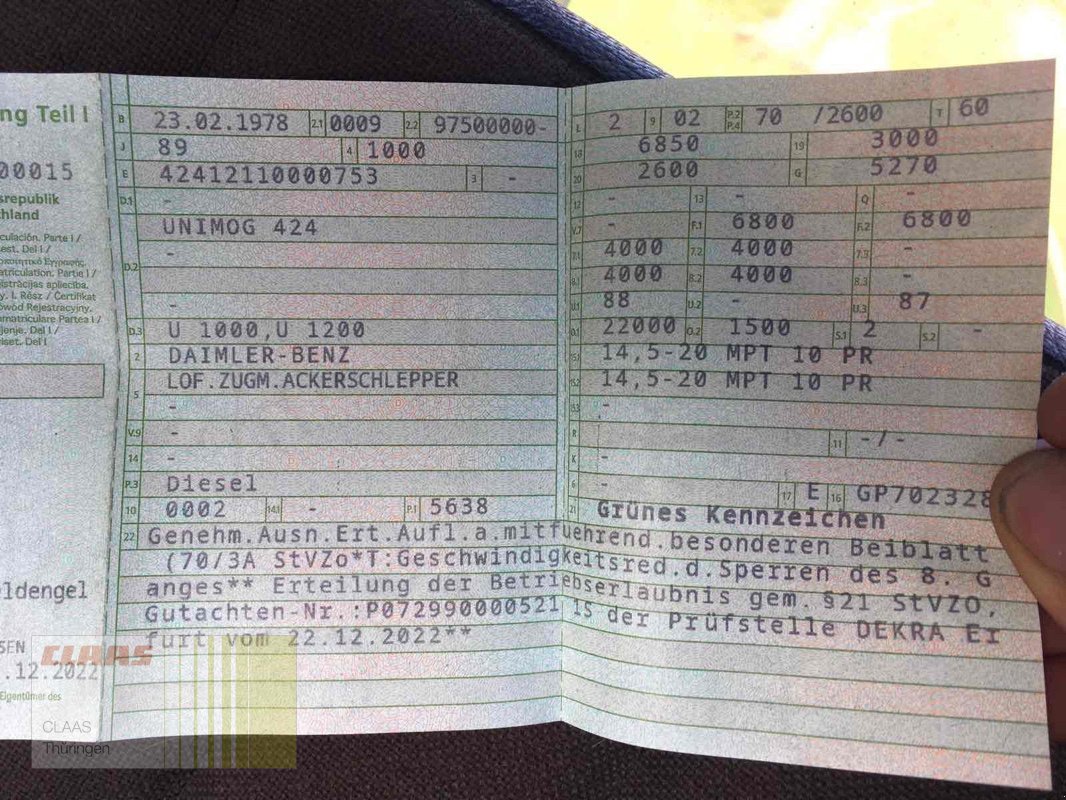 ng Teil I
00015
srepublik
chland
culación. Parte I /
est. Del I /
atriculation. Partie I /
istrācijas apliecība.
y. I. Rész / Certifikat
owód Rejestracyjny.
matriculare Partea I /
ljenje. Del I /
iset. Del I
eldengel
SEN
.12.2022
Eigentümer des
B 23.02.1978 2.1 0009 2.2 97500000-
J 89 4 1000
E 42412110000753 3 -
D.1 -
UNIMOG 424
D.2 -
-
D.3 U 1000,U 1200
2 DAIMLER-BENZ
5 LOF.ZUGM.ACKERSCHLEPPER
-
V.9 -
14 -
P.3 Diesel
10 0002 14.1 - P.1 5638
L 2 9 02 P.2 P.4 70 /2600 T 60
18 6850 19 3000
20 2600 G 5270
12 - 13 - Q -
V.7 - F.1 6800 F.2 6800
7.1 4000 7.2 4000 7.3 -
8.1 4000 8.2 4000 8.3 -
U.1 88 U.2 - U.3 87
O.1 22000 O.2 1500 S.1 2 S.2 -
15.1 14,5-20 MPT 10 PR
15.2 14,5-20 MPT 10 PR
15.3 -
R - 11 -/-
K -
6 - 17 E 16 GP702328
21 Grünes Kennzeichen
22 Genehm.Ausn.Ert.Aufl.a.mitfuehrend.besonderen Beiblatt
(70/3A StVZo*T:Geschwindigkeitsred.d.Sperren des 8. G
anges** Erteilung der Betriebserlaubnis gem.§21 StVZO,
Gutachten-Nr.:P072990000521 IS der Prüfstelle DEKRA Er
furt vom 22.12.2022**
CLAAS
CLAAS
Thüringen